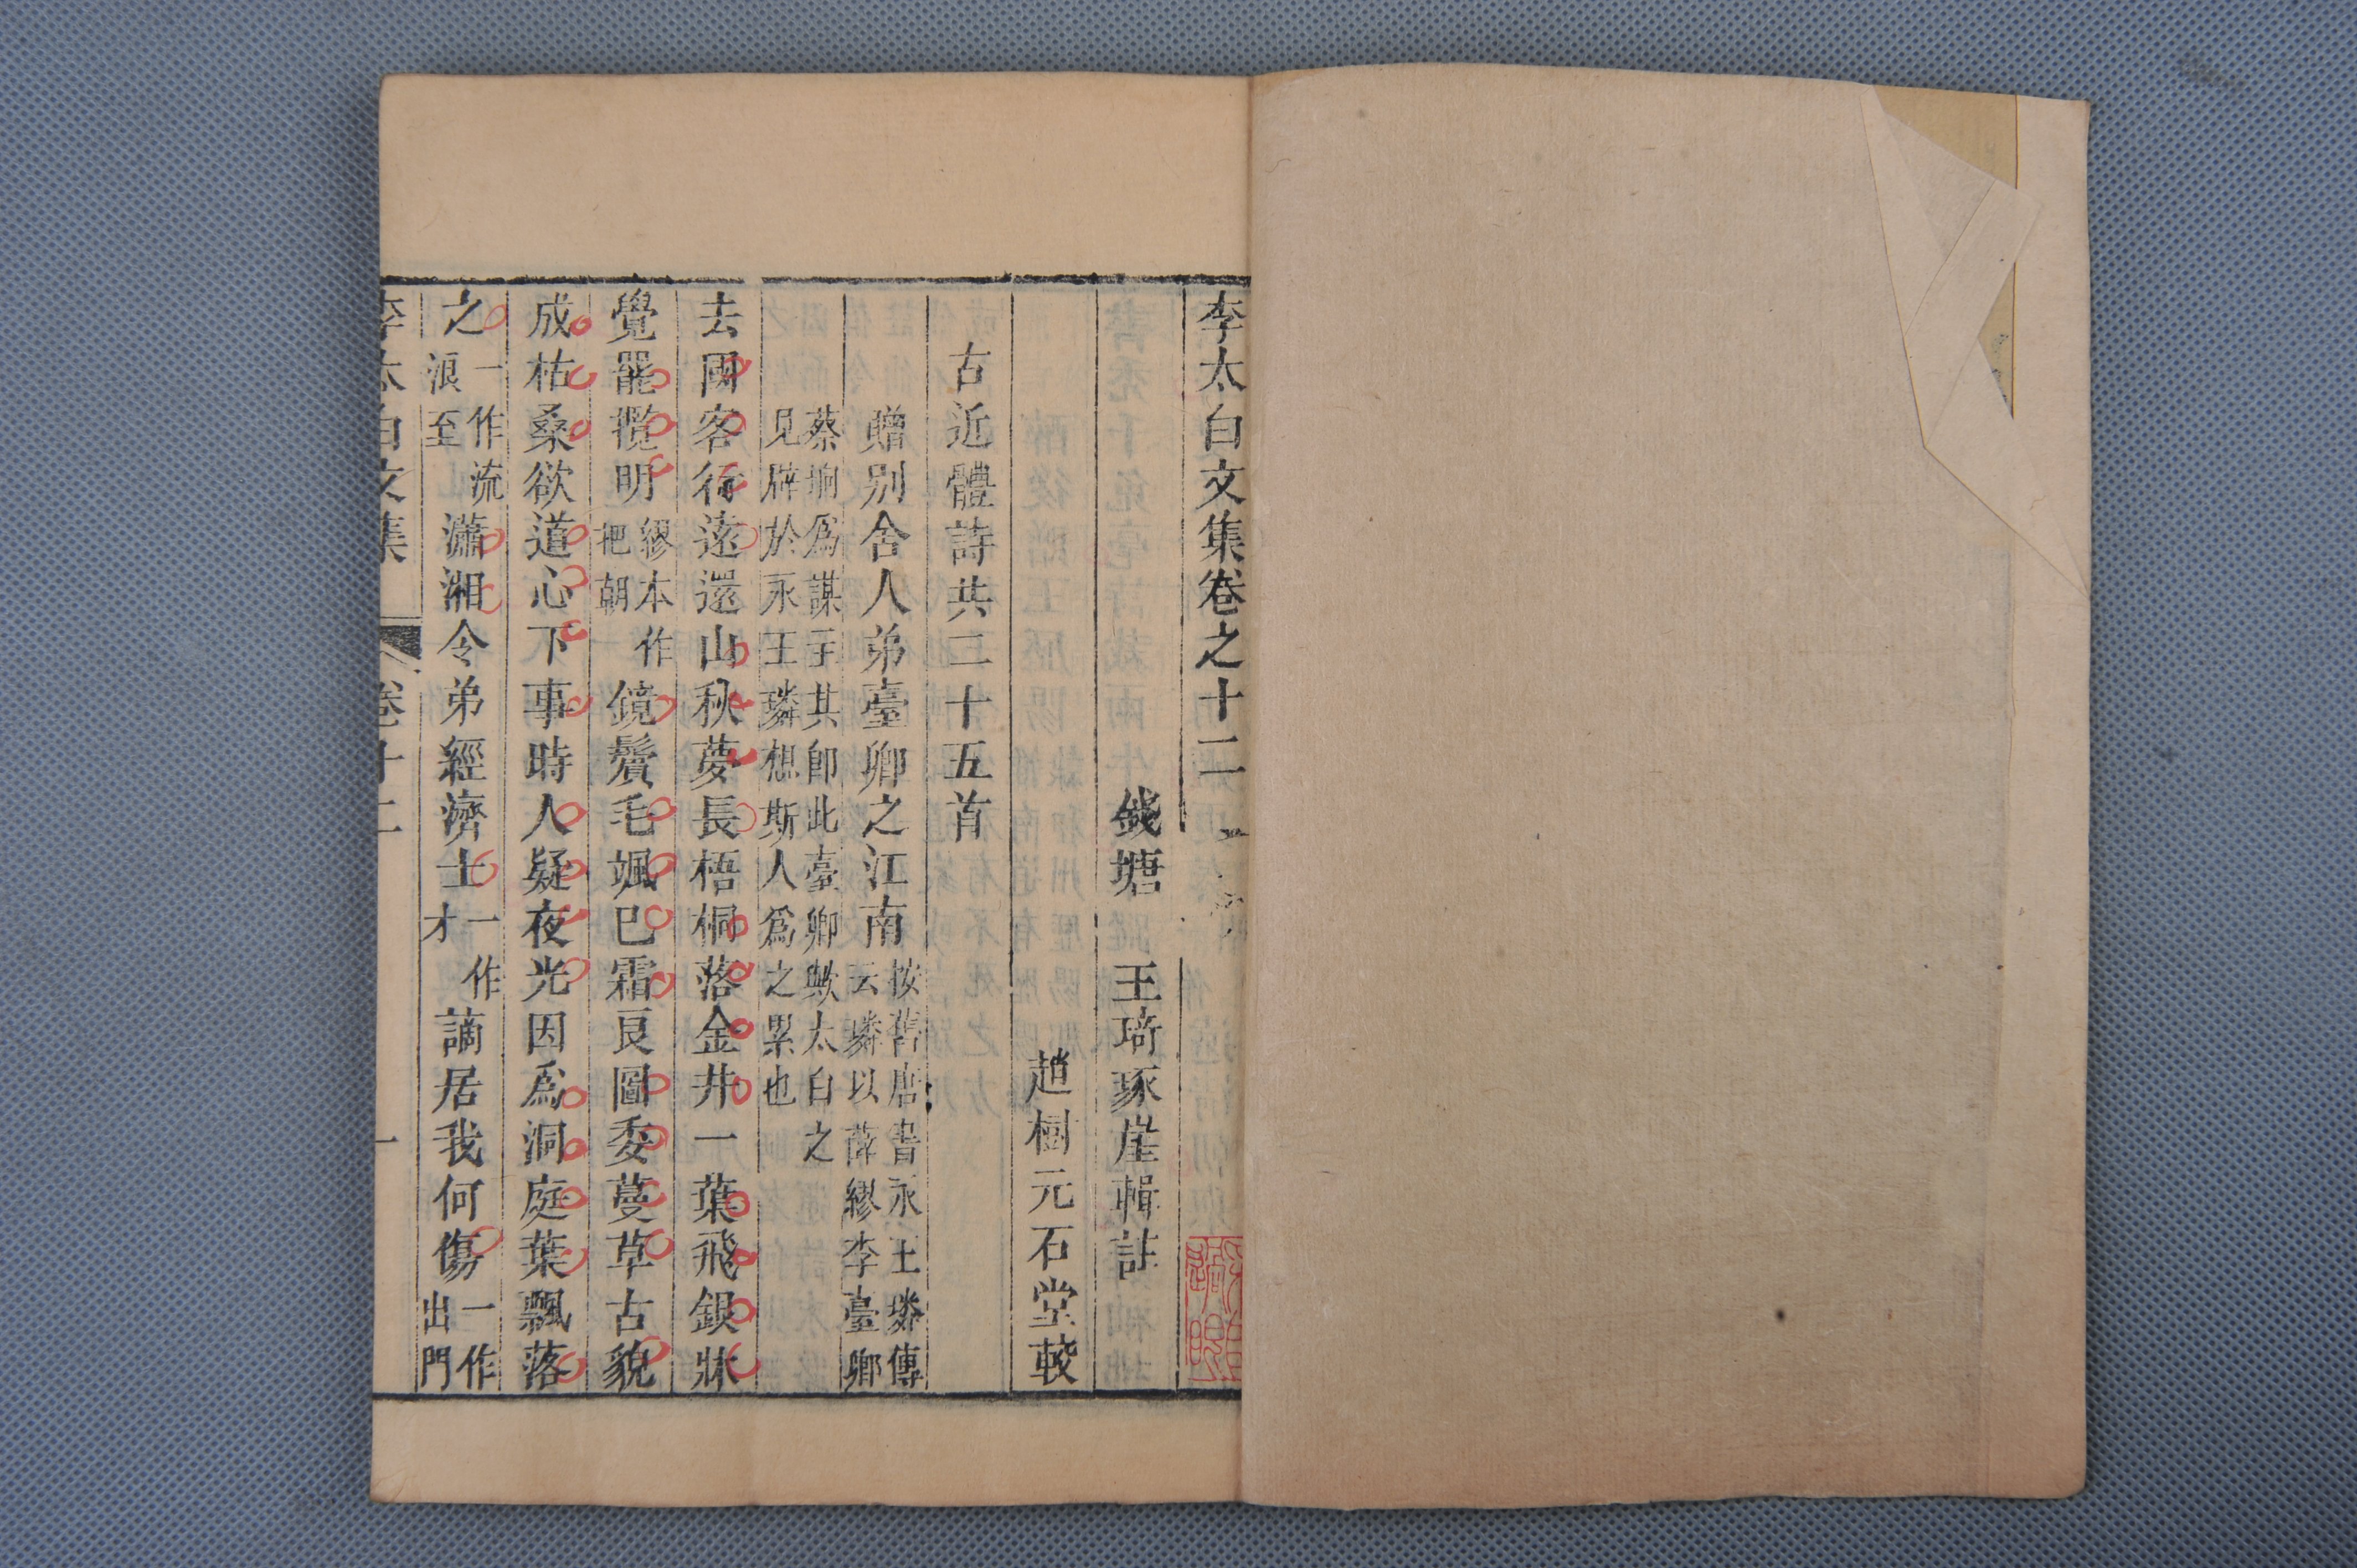 李太白文集卷之十二
錢塘 王琦琢崖輯註
趙樹元石堂較
古近體詩共二十五首
贈別舍人弟臺卿之江南
按舊唐書永王璘傳
云璘以薛繆李臺卿
蔡坰爲謀主其卽此臺卿歟太白之
見辟於永王璘想斯人爲之累也
去國客行遠還山秋夢長梧桐落金井一葉飛銀牀
覺罷攬明
繆本作
把朝
鏡鬢毛颯已霜良圖委蔓草古貌
成枯桑欲道心下事時人疑夜光因爲洞庭葉飄落
之
一作流
浪至
瀟湘令弟經濟士
一作
才
謫居我何傷
一作
出門
李太白文集 卷十二 一